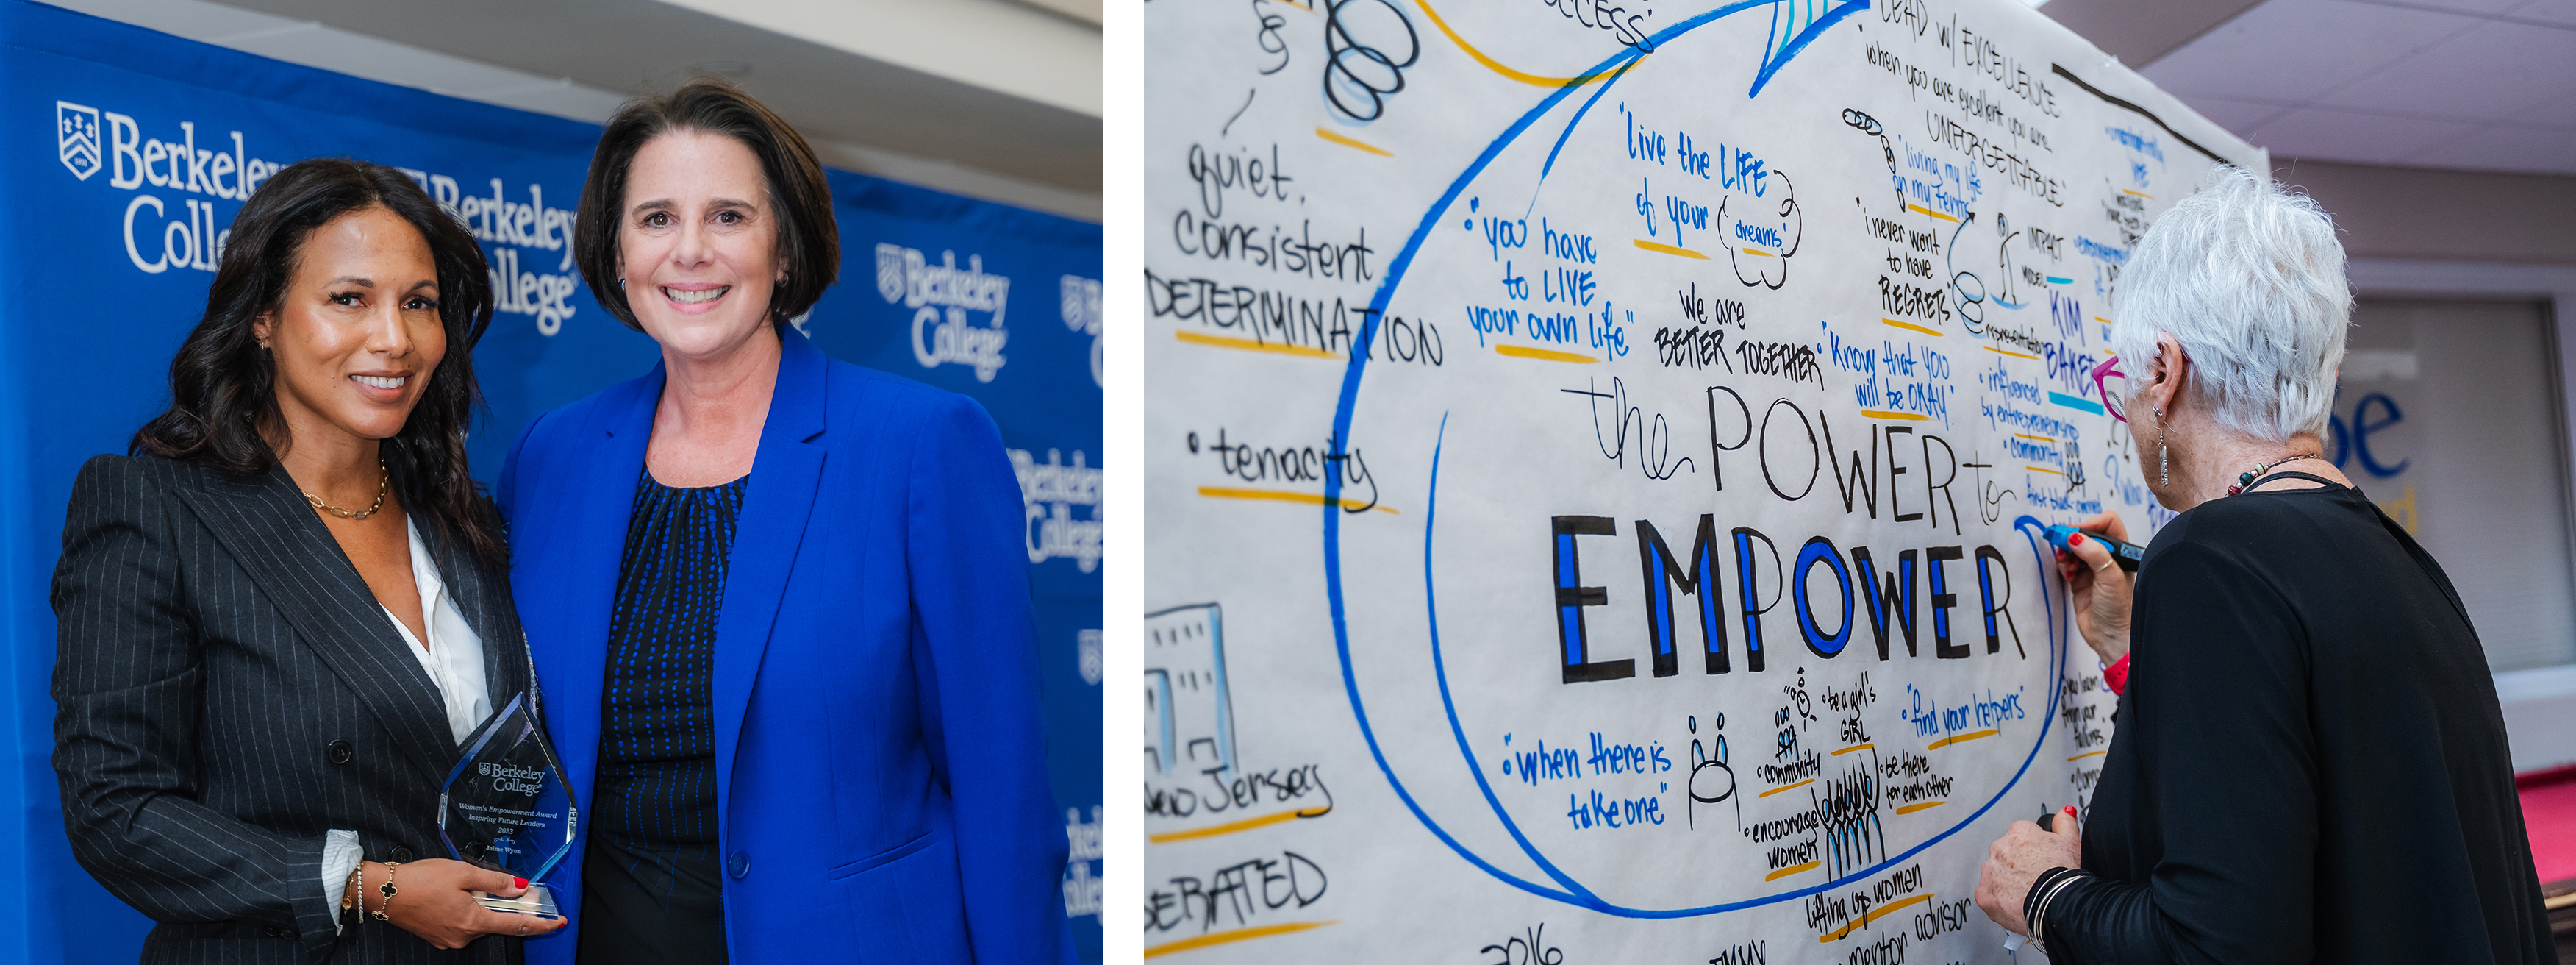 Berkeley
Berkeley
College
Berkeley
College
Berkeley
College
Berkeley
College
Women's Empowerment Award
Inspiring Future Leaders
2023
Jaime Wynn
LEAD w/ EXCELLENCE
"when you are excellent you are
UNFORGETTABLE"
quiet,
consistent
DETERMINATION
• tenacity
New Jersey
• "you have
to LIVE
your own life"
"live the LIFE
of your dreams"
We are
BETTER TOGETHER
• "Know that you
will be OKAY"
• "living my life
on my terms"
"i never want
to have
REGRETS"
IMPACT
MODEL
KIM
BAKER
representation
• influenced
by entrepreneurship
• community
first black owned
the POWER to
EMPOWER
• "when there is
take one"
• community
• be a girl's
GIRL
• "find your helpers"
• be there
for each other
• encourage
women
lifting up women
mentor advisor
2016